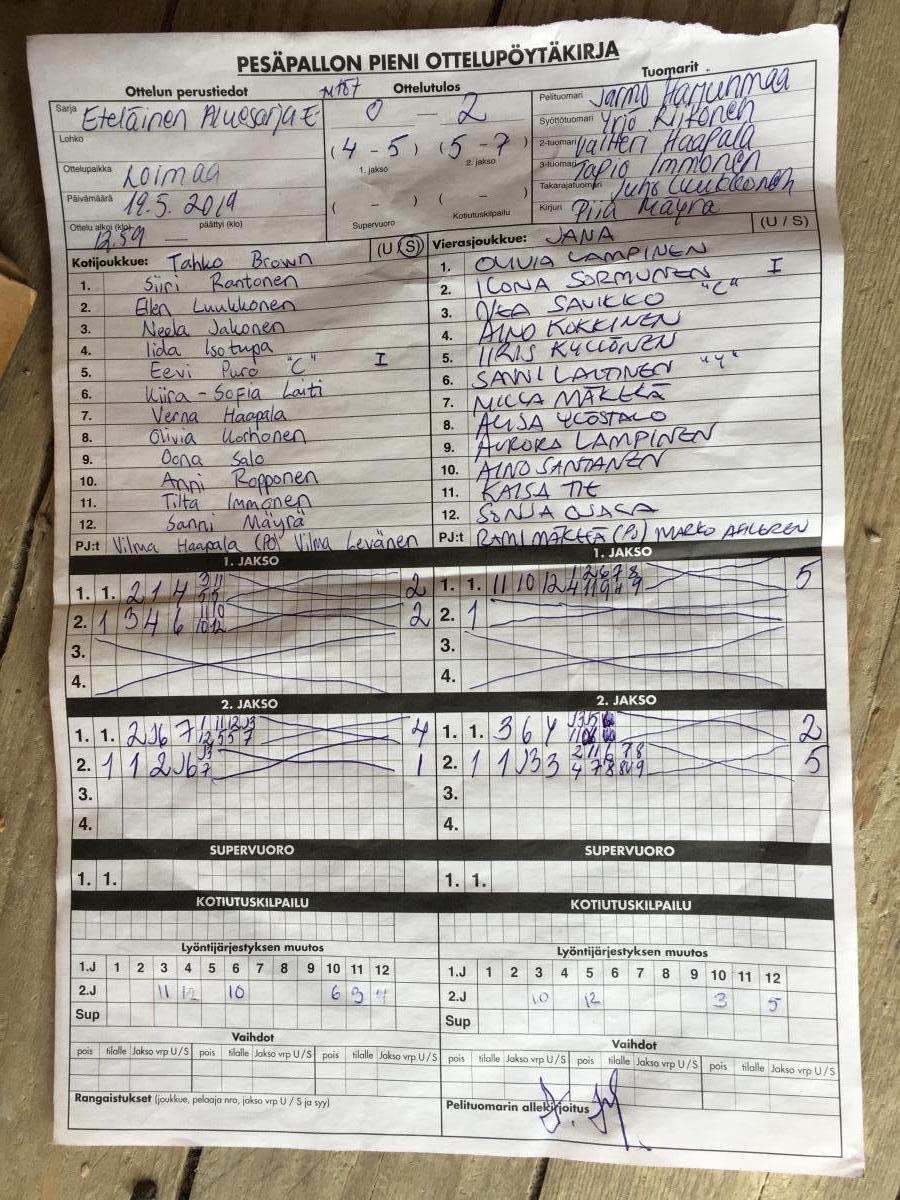 PESÄPALLON PIENI OTTELUPÖYTÄKIRJA
Ottelun perustiedot
Ottelutulos
Tuomarit
Sarja Eteläinen Aluesarja E
0 - 2
Pelituomari Jarmo
Lohko
(4 - 5) (5 - 7)
Syöttötuomari Yrjö
1. jakso 2. jakso
2-tuomari Valtteri Haapala
Ottelupaikka Loimaa
3-tuomari Tapio Immonen
Päivämäärä 19.5. 2019
( - ) ( - )
Takarajatuomari Juho Luukkonen
Ottelu alkoi (klo) 12.59 päättyi (klo)
Supervuoro Kotiutuskilpailu
Kirjuri Piia Mäyrä
Kotijoukkue: Tahko Brown (U/S)
1. Siiri Rantonen
2. Ellen Luukkonen
3. Neela Jakonen
4. Iida Isotupa
5. Eevi Puro "C" I
6. Kiira-Sofia Laiti
7. Verna Haapala
8. Olivia Korhonen
9. Oona Salo
10. Anni Ropponen
11. Tilta Immonen
12. Sanni Mäyrä
PJ:t Vilma Haapala (PJ) Vilma Levänen
Vierasjoukkue: JANA (U / S)
1. OLIVIA LAMPINEN
2. ILONA SORMUNEN I
3. SAVIKKO "C"
4. AINO KOKKINEN
5. IIRIS KYLLÖNEN
6. SANNI LALTINEN "Y"
7. MILLA MÄKELÄ
8. ALISA YLÖSTALO
9. AURORA LAMPINEN
10. AINO SANTANEN
11. KAISA TIE
12. SONJA OJALA
PJ:t RAMI MÄKELÄ (PJ) MARKO AHLGREN
1. JAKSO
1. 1. 2 1 4 2
2. 1 3 4 6 2
3.
4.
1. JAKSO
1. 1. 11 10 12 5
2. 1
3.
4.
2. JAKSO
1. 1. 4
2. 1 1 2 1
3.
4.
2. JAKSO
1. 1. 3 6 4 2
2. 1 1 5
3.
4.
SUPERVUORO
1. 1.
SUPERVUORO
1. 1.
KOTIUTUSKILPAILU
KOTIUTUSKILPAILU
Lyöntijärjestyksen muutos
1.J 1 2 3 4 5 6 7 8 9 10 11 12
2.J 11 12 10 6 3 4
Sup
Lyöntijärjestyksen muutos
1.J 1 2 3 4 5 6 7 8 9 10 11 12
2.J 10 12 3 5
Sup
Vaihdot
pois tilalle Jakso vrp U/S pois tilalle Jakso vrp U/S pois tilalle Jakso vrp U/S
Vaihdot
pois tilalle Jakso vrp U/S pois tilalle Jakso vrp U/S pois tilalle Jakso vrp U/S
Rangaistukset (joukkue, pelaaja nro, jakso vrp U / S ja syy)
Pelituomarin allekirjoitus